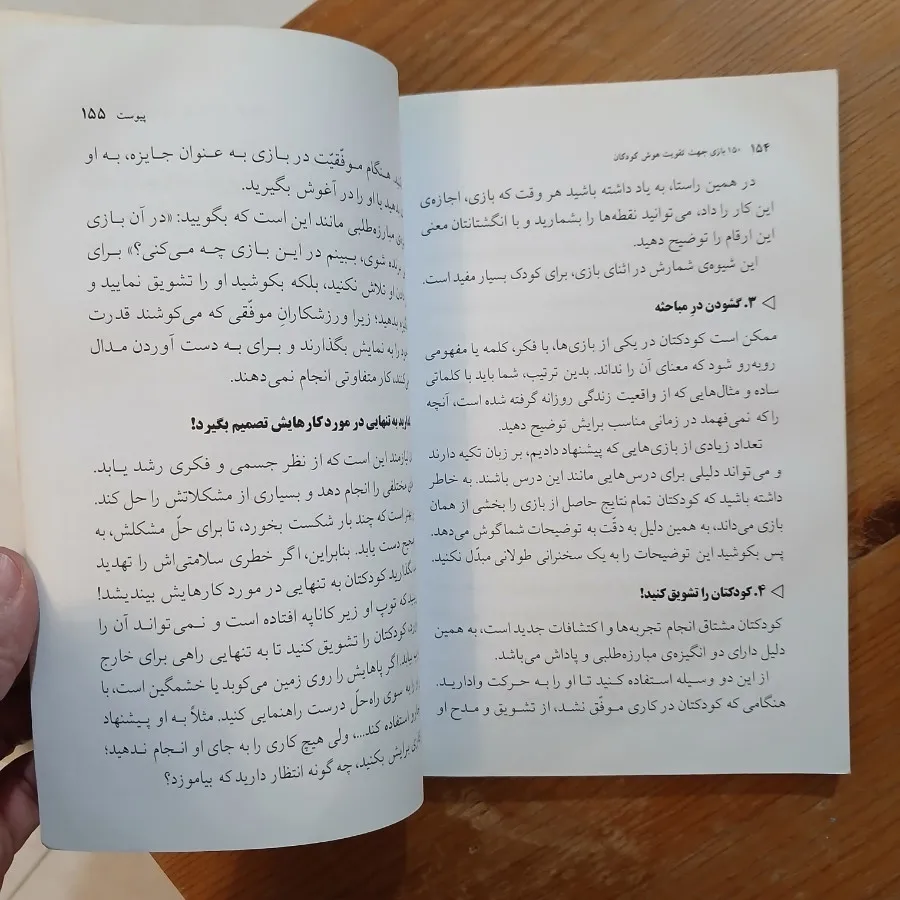 ۱۵۴ ۱۵۰ بازی جهت تقویت هوش کودکان
در همین راستا، به یاد داشته باشید هر وقت که بازی، اجازه‌ی
این کار را داد، می‌توانید نقطه‌ها را بشمارید و با انگشتانتان معنی
این ارقام را توضیح دهید.
این شیوه‌ی شمارش در اثنای بازی، برای کودک بسیار مفید است.
۳. گشودن درِ مباحثه
ممکن است کودکتان در یکی از بازی‌ها، با فکر، کلمه یا مفهومی
روبه‌رو شود که معنای آن را نداند. بدین ترتیب، شما باید با کلماتی
ساده و مثال‌هایی که از واقعیت زندگی روزانه گرفته شده است، آنچه
را که نمی‌فهمد در زمانی مناسب برایش توضیح دهید.
تعداد زیادی از بازی‌هایی که پیشنهاد دادیم، بر زبان تکیه دارند
و می‌تواند دلیلی برای درس‌هایی مانند این درس باشند. به خاطر
داشته باشید که کودکتان تمام نتایج حاصل از بازی را بخشی از همان
بازی می‌داند، به همین دلیل به دقّت به توضیحات شما گوش می‌دهد.
پس بکوشید این توضیحات را به یک سخنرانی طولانی مبدّل نکنید.
۴. کودکتان را تشویق کنید!
کودکتان مشتاق انجام تجربه‌ها و اکتشافات جدید است، به همین
دلیل دارای دو انگیزه‌ی مبارزه‌طلبی و پاداش می‌باشد.
از این دو وسیله استفاده کنید تا او را به حرکت وادارید.
هنگامی که کودکتان در کاری موفّق نشد، از تشویق و مدح او
پیوست ۱۵۵
هنگام موفّقیّت در بازی به عنوان جایزه، به او
یا او را در آغوش بگیرید.
مبارزه‌طلبی مانند این است که بگویید: «در آن بازی
برنده شوی، ببینم در این بازی چه می‌کنی؟» برای
او تلاش نکنید، بلکه بکوشید او را تشویق نمایید و
بدهید؛ زیرا ورزشکارانِ موفّقی که می‌کوشند قدرت
را به نمایش بگذارند و برای به دست آوردن مدال
کار متفاوتی انجام نمی‌دهند.
به تنهایی در مورد کارهایش تصمیم بگیرد!
نیازمند این است که از نظر جسمی و فکری رشد یابد.
مختلفی را انجام دهد و بسیاری از مشکلاتش را حل کند.
است که چند بار شکست بخورد، تا برای حلّ مشکلش، به
دست یابد. بنابراین، اگر خطری سلامتی‌اش را تهدید
کودکتان به تنهایی در مورد کارهایش بیندیشد!
که توپ او زیر کاناپه افتاده است و نمی‌تواند آن را
کودکتان را تشویق کنید تا به تنهایی راهی برای خارج
بیابد. اگر پاهایش را روی زمین می‌کوبد یا خشمگین است، با
به سوی راه‌حلّ درست راهنمایی کنید. مثلاً به او پیشنهاد
استفاده کند...، ولی هیچ کاری را به جای او انجام ندهید؛
برایش بکنید، چه گونه انتظار دارید که بیاموزد؟